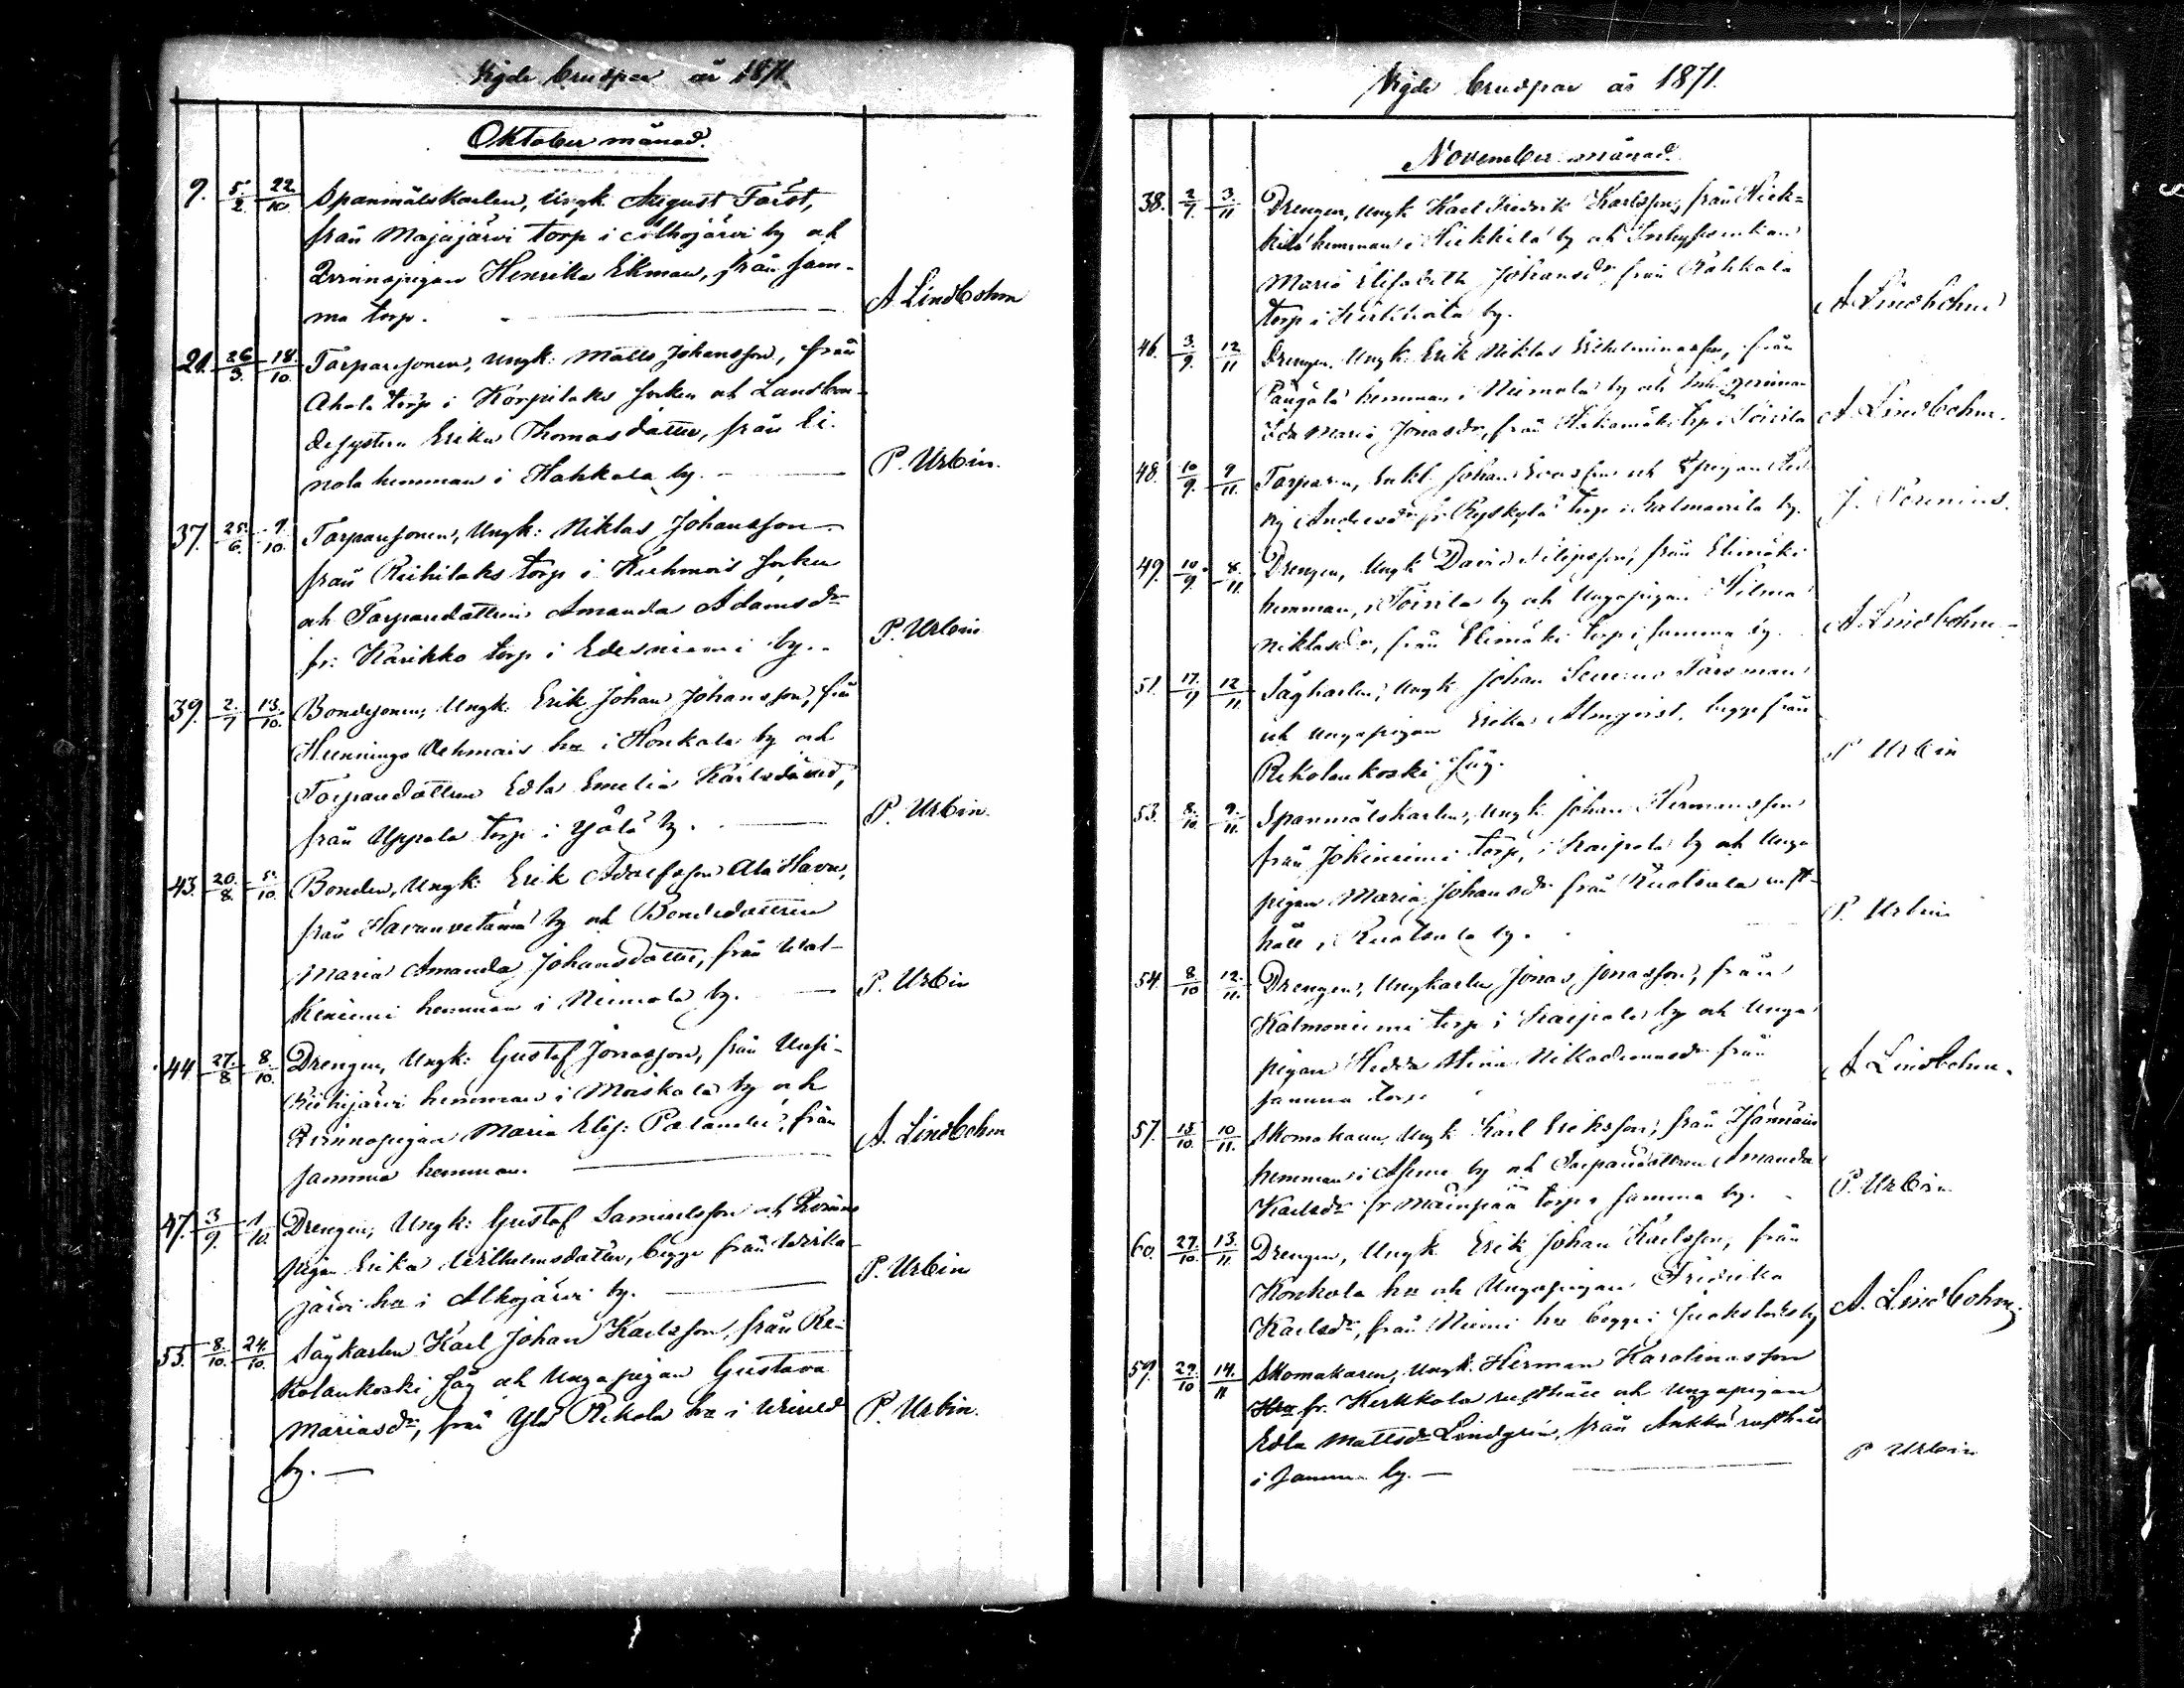 Vigde brudpar år 1871.
Oktober månad.
9. 5/2. 22/10. Spanmålskarlen, Ungk. August Forst,
från Majajärvi torp i Alhojärvi by och
Qvinnopigan Henrika Ekman, från sam-
ma torp. A Lindbohm
21. 26/3. 18/10. Torparesonen, Ungk: Matts Johansson, från
Ahola torp i Korpilaks socken och Landbon-
desystern Erika Thomasdotter, från Ei-
nola hemman i Hahkala by. P. Urbin.
37. 25/6. 1/10. Torparesonen, Ungk: Niklas Johansson
från Riihilaks torp i Kuhmois socken
och Torparedottren Amanda Adamsdr
fr: Karikko torp i Edesniemi by. P. Urbin
39. 2/7 13/10. Bondesonen, Ungk: Erik Johan Johansson, från
Hunnings Uchmais hn i Honkala by och
Torparedottren Edla Emelia Karlsdotter,
från Uppala torp i Ylölä by. P. Urbin.
43. 20/8. 5/10. Bonden, Ungk: Erik Adolfsson Ala Havu,
från Havunvetämä by och Bondedottren
Maria Amanda Johansdotter, från Wal-
keniemi hemman i Niemola by. P. Urbin
44 27/8 8/10. Drengen, Ungk: Gustaf Jonasson, från Uusi-
Riihijärvi hemman i Maiskala by och
Qvinnopigan Maria Elis: Palander, från
samma hemman. A. Lindbohm
47. 3/9. 1/10. Drengen, Ungk: Gustaf Samuelsson och Qvinno
pigan Erika Wilhelmsdotter, begge från Werika
järvi hn i Alhojärvi by. P. Urbin
55. 8/10. 24/10. Sågkarlen Karl Johan Karlsson, från Re-
kolankoski såg och Ungapigan Gustava
Mariasdr, från Ylä Rekola hn i Wirued
by. P. Urbin.
Vigde brudpar år 1871.
November månad.
38. 2/7. 3/11 Drengen, Ungk Karl Fredrik Karlsson, från Hiek-
kilä hemman i Hiekkilä by och Inhysesenkan
Maria Elisabeth Johansdr från Rahkala
torp i Kurkijata by. A Lindbohm
46. 3/9. 12/11 Drengen, Ungk: Erik Niklas Wilhelminasson, från
Pängälä hemman i Niemola by och Inh: qvinnan
Ida Maria Jonasdr, från Hakamäki torp i Toivila A. Lindbohm.
48. 10/9. 9/11. Torparen, Enkl: Johan Evasson och Epigan Hed
vig Andersdr fr Ryskylä torp i Kalmavirla by. J. Perenius.
49. 10/9. 8/11. Drengen, Ungk David Filipsson, från Elimäki
hemman, i Toivila by och Ungapigan Wilma
Niklasdr, från Elimäki torp i samma by. A. Lindbohm
51. 17/9 12/11. Sågkarlen, Ungk. Johan Severus Forsman
och Ungapigan Erika Almqvist, begge från
Rekolankoski såg. P Urbin
53. 8/10. 9/11. Spanmålskarlen, Ungk. Johan Hermansson
från Jokiniemi torp, i Kaipola by och Unga
pigan Maria Johansdr från Ruotsula rust-
håll i Ruotsula by. P. Urbin
54. 8/10 12/11. Drengen, Ungkarlen Jonas Jonasson, från
Kalmoniemi torp i Kaipola by och Unga
pigan Hedda Stina Nikodemusdr från
samma torp A Lindbohm.
57. 15/10. 10/11. Skomakaren, Ungk Karl Eriksson, från Isännäin
hemman i Asene by och Torparedottren Amanda
Karlsdr fr Mäinpää torp i samma by. P. Urbin
60. 27/10. 13/11. Drengen, Ungk Erik Johan Karlsson, från
Konkola hn och Ungapigan Fredrika
Karlsdr, från Niemi hn begge i Juokslaks by A. Lindbohm.
59. 29/10 14/11 Skomakaren, Ungk. Herman Karolinasson
fr. Kerkkola rusthåll och Ungapigan
Edla Mattsdr Lindgrén, från Ankka rusthåll
i samma by. P Urbin